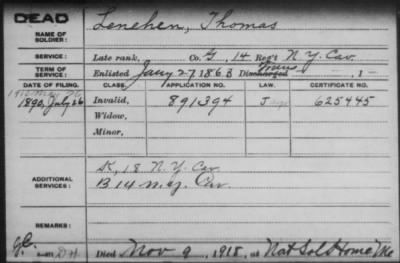 DEAD
NAME OF SOLDIER: Lenehen, Thomas
SERVICE: Late rank, Co. G, 14 Reg't N.Y. Cav.
TERM OF SERVICE: Enlisted Jany 27 1863 Discharged , 1
DATE OF FILING. CLASS. APPLICATION NO. LAW. CERTIFICATE NO.
1890, July 26 Invalid, 891394 J 625445
Widow,
Minor,
ADDITIONAL SERVICES: K, 18 N.Y. Cav
B 14 N.Y. Cav.
REMARKS:
Died Nov 9, 1918, at Nat Sol Home Me